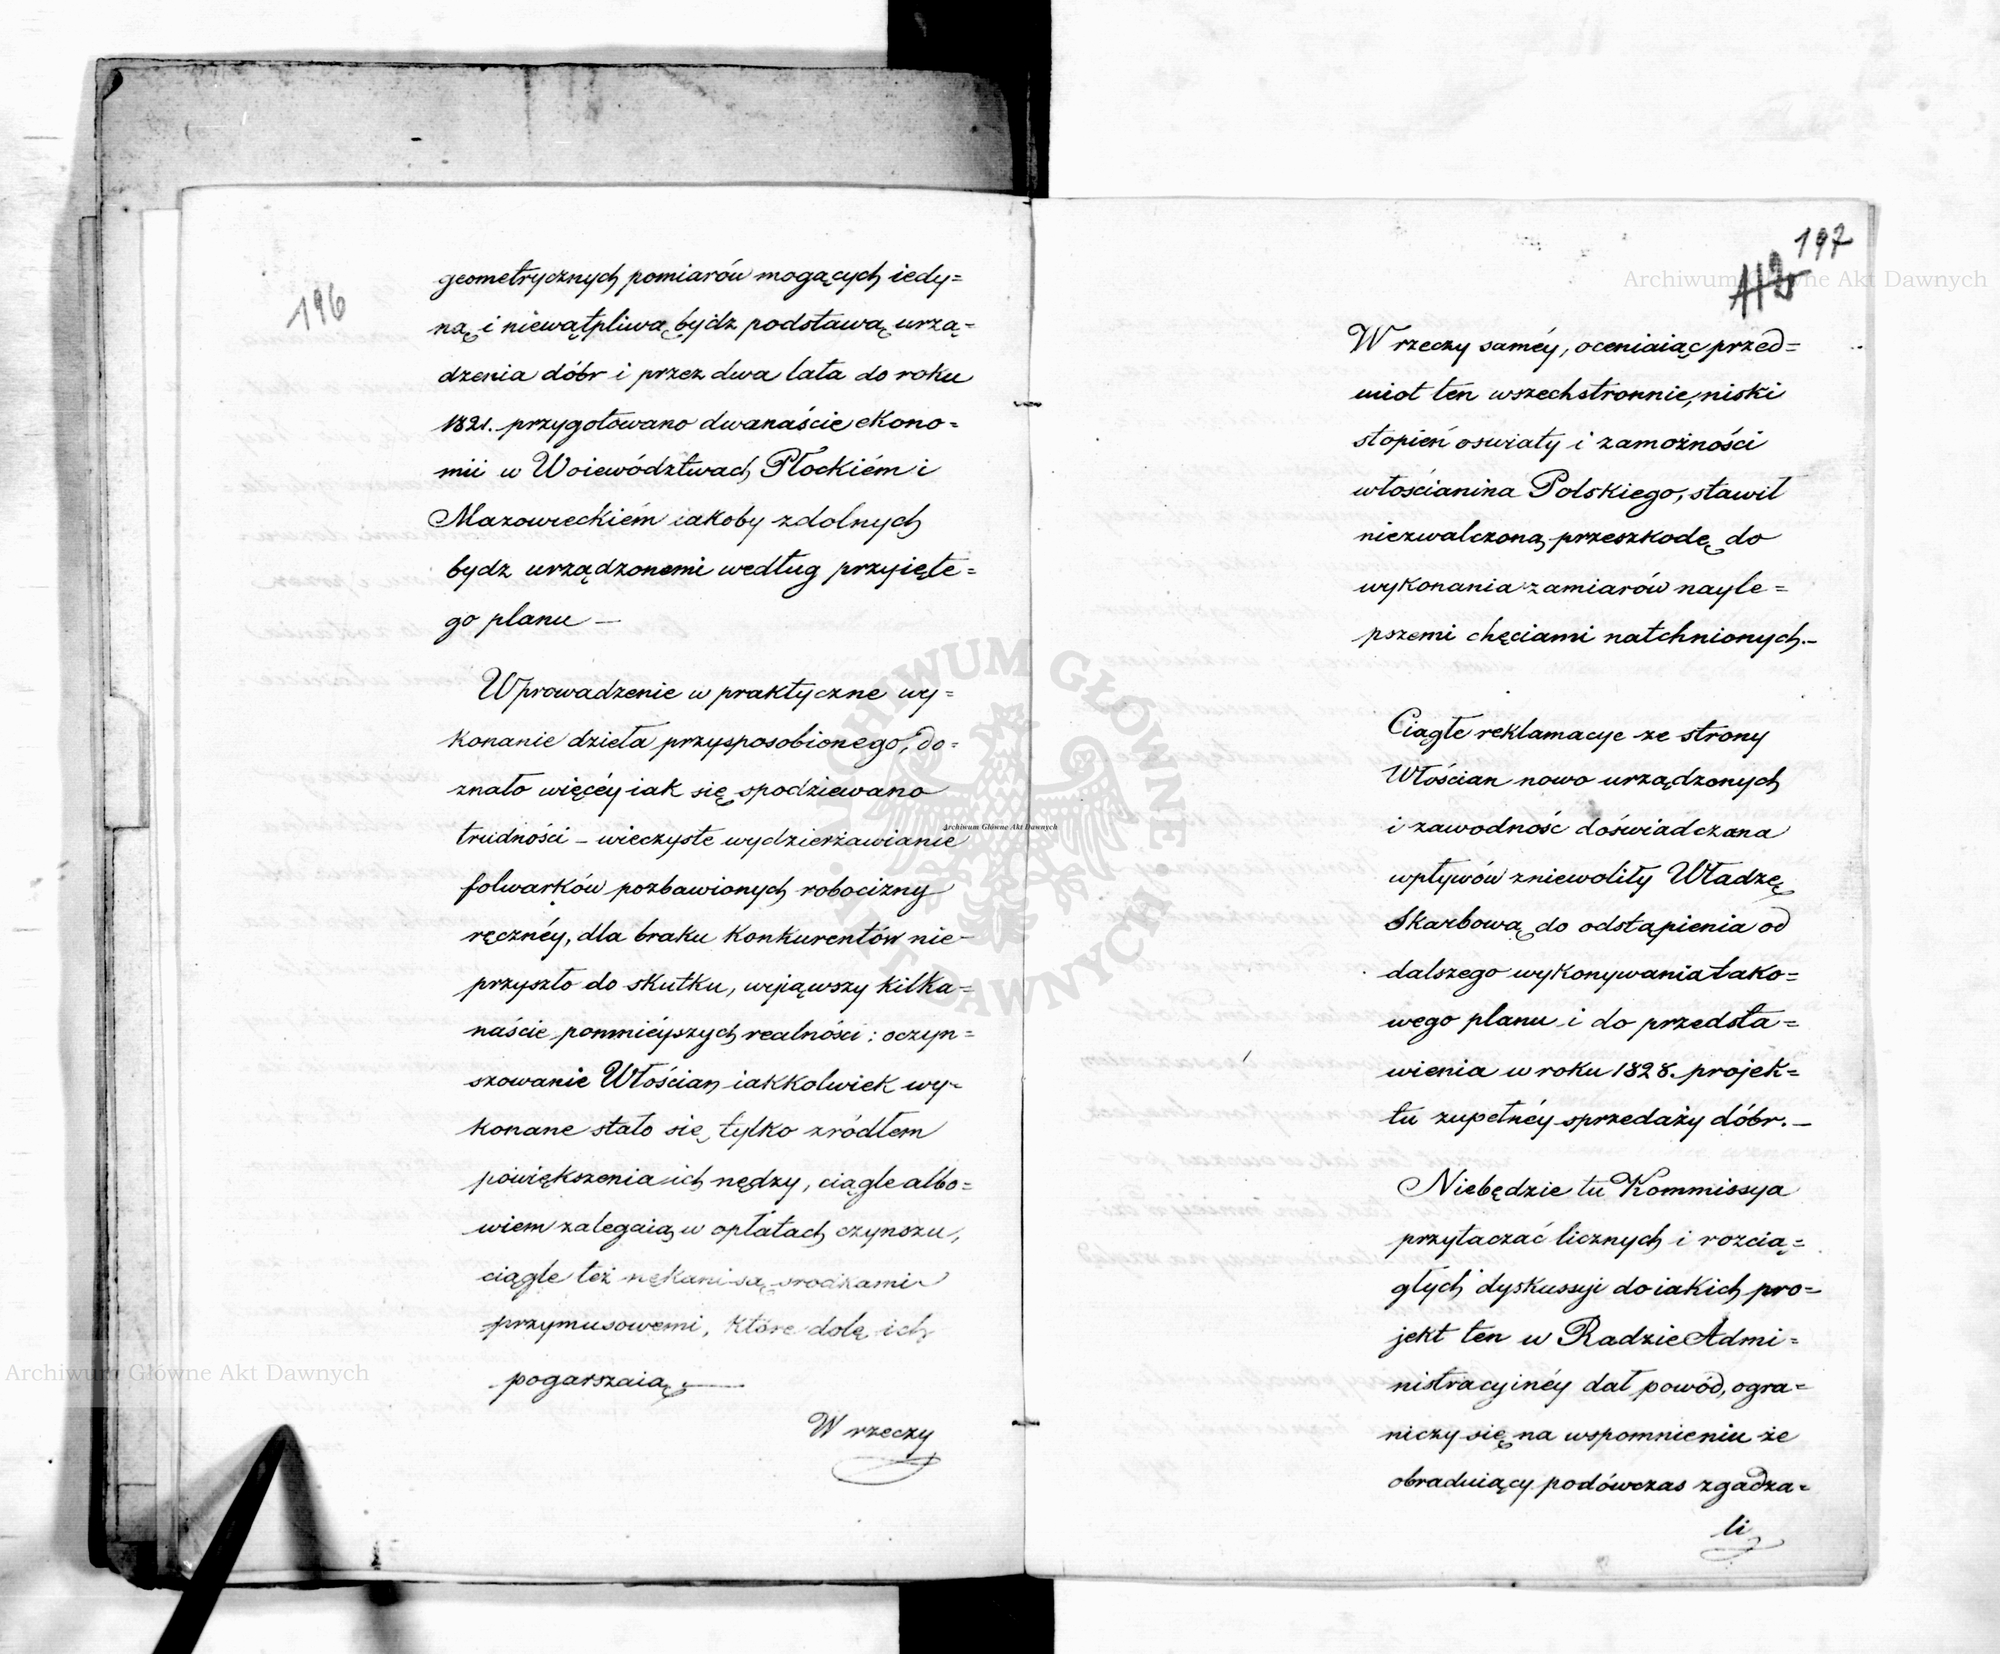 196
geometrycznych pomiarów mogących iedy=
ną i niewątpliwą bydz podstawą urzą=
dzenia dóbr i przez dwa lata do roku
1821. przygotowano dwanaście ekono=
mii w Woiewództwach Płockiém i
Mazowieckiém iakoby zdolnych
bydz urządzonemi według przyięte=
go planu —
Wprowadzenie w praktyczne wy=
konanie dzieła przysposobionego, do=
znało więcéy iak się spodziewano
trudności – wieczyste wydzierżawianie
folwarków pozbawionych robocizny
ręcznéy, dla braku konkurentów nie
przyszło do skutku, wyiąwszy kilka=
naście pomnieyszych realności: oczyn=
szowanie Włościan iakkolwiek wy=
konane stało się tylko zródłem
powiększenia ich nędzy, ciągle albo=
wiem zalegaią w opłatach czynszu,
ciągle też nękani są srodkami
przymusowemi, które dolę ich
pogarszaią. —
W rzeczy
197
113
W rzeczy saméy, oceniaiąc przed=
miot ten wszechstronnie, niski
stopień oswiaty i zamożności
włościanina Polskiego, stawił
niezwalczoną przeszkodę do
wykonania zamiarów nayle=
pszemi chęciami natchnionych.–
Ciągłe reklamacye ze strony
Włościan nowo urządzonych
i zawodność doświadczana
wpływów zniewoliły Władzę
Skarbową do odstąpienia od
dalszego wykonywania tako=
wego planu i do przedsta=
wienia w roku 1828. projek=
tu zupełnéy sprzedaży dóbr. –
Niebędzie tu Kommissya
przytaczać licznych i rozcią=
głych dyskussyi do iakich pro=
jekt ten w Radzie Admi=
nistracyinéy dał powód, ogra=
niczy się na wspomnieniu że
obraduiący podówczas zgadza=
li
Archiwum Główne Akt Dawnych
Archiwum Główne Akt Dawnych
Archiwum Główne Akt Dawnych
ARCHIWUM GŁÓWNE AKT DAWNYCH